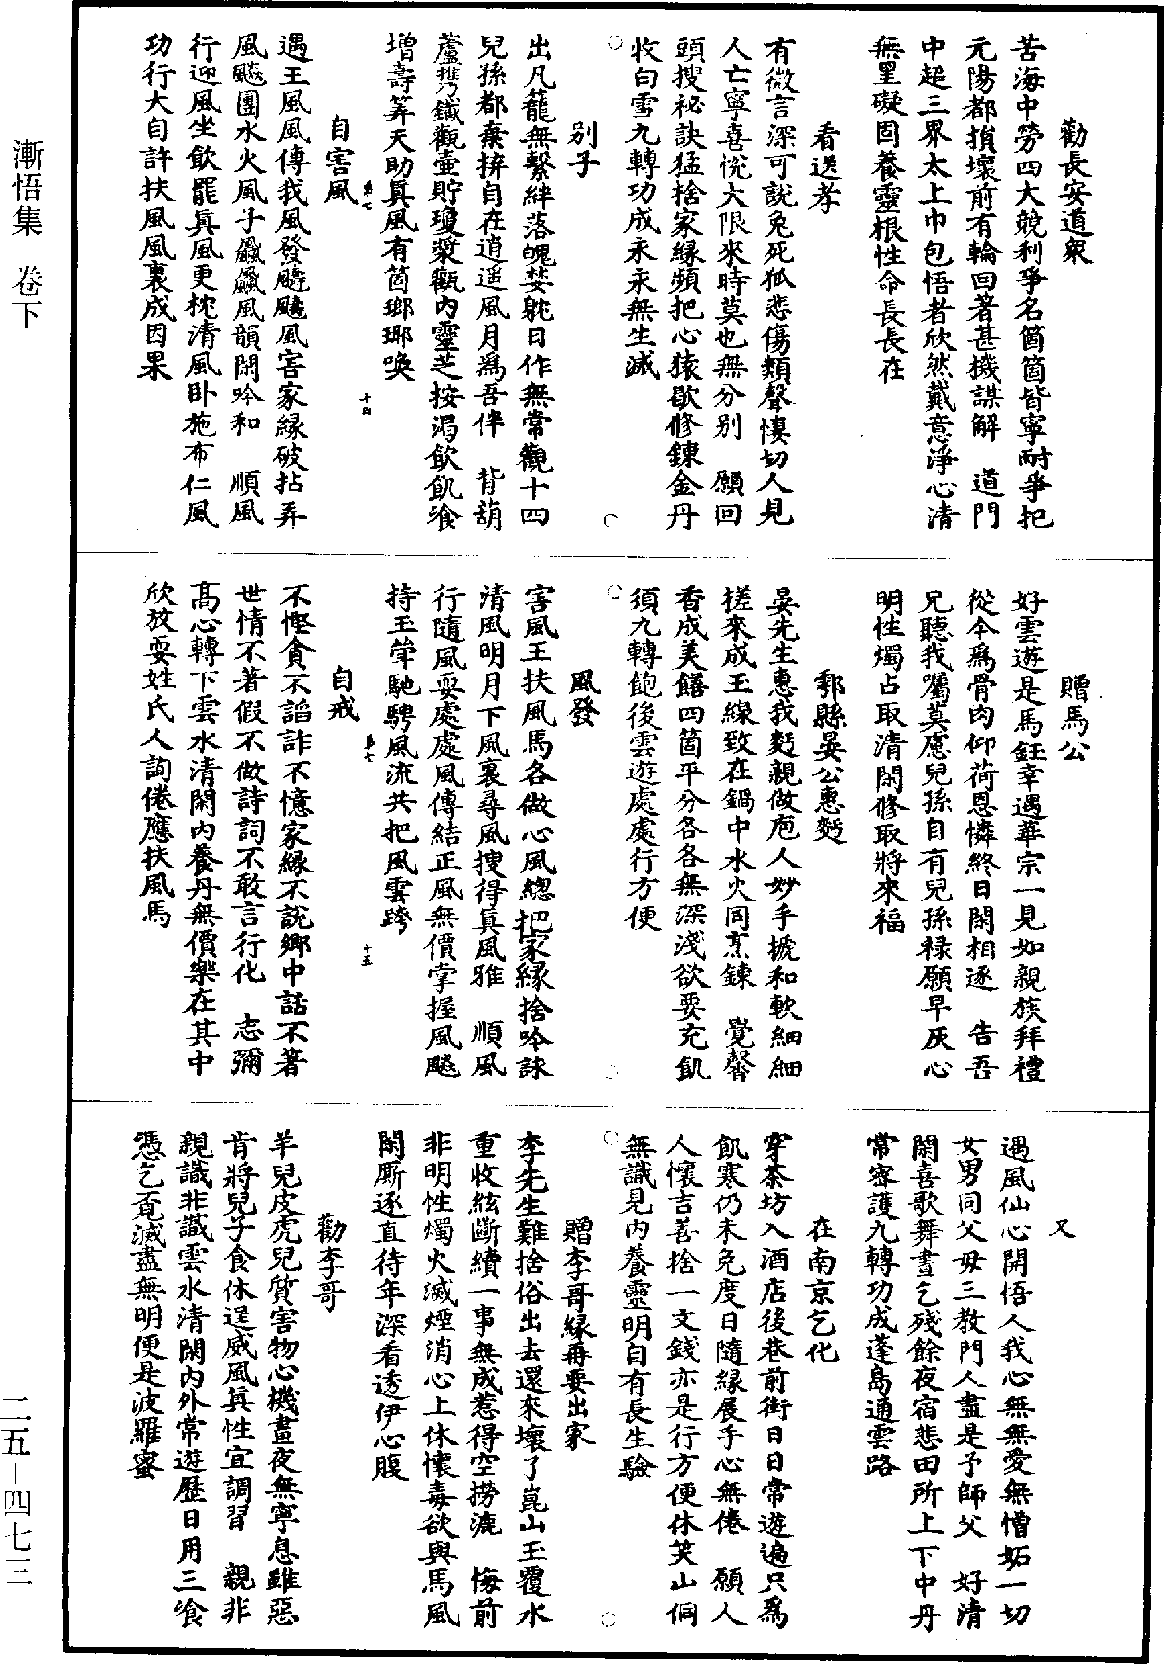 漸悟集　卷下
二五－四七三
勸長安道衆
苦海中勞四大競利爭名箇箇皆寧耐爭把
元陽都損壞前有輪回著甚機謀解　道門
中超三界太上巾包悟者欣然戴意淨心清
無罣礙固養靈根性命長長在
看送孝
有微言深可說兔死狐悲傷類聲悽切人見
人亡寧喜悅大限來時莫也無分别　願回
頭搜祕訣猛捨家縁頻把心猿歇修鍊金丹
收白雪九轉功成永永無生滅
别子
出凡籠無繫絆落魄婪躭日作無常觀十四
兒孫都棄拚自在逍遥風月爲吾伴　背葫
蘆攜鐵觀壺貯瓊漿氈内靈芝按渴飲飢飡
增壽筭天助真風有箇瑯琊喚
自害風
遇王風風傳我風發飈飈風害家縁破拈弄
風颷團水火風子飍飍風韻閑吟和　順風
行迎風坐飲罷真風更枕清風卧施布仁風
功行大自許扶風風裏成因果
贈馬公
好雲遊是馬鈺幸遇華宗一見如親族拜禮
從今爲骨肉仰荷恩憐終日閑相逐　告吾
兄聽我囑莫慮兒孫自有兒孫禄願早灰心
明性燭占取清閑修取將來福
鄠縣晏公惠麪
晏先生惠我麪親做庖人妙手搋和軟細細
搓來成玉線致在鍋中水火同烹鍊　覺馨
香成美饍四箇平分各各無深淺欲要充飢
須九轉飽後雲遊處處行方便
風發
害風王扶風馬各做心風總把家縁捨吟詠
清風明月下風裏尋風搜得真風雅　順風
行隨風耍處處風傳結正風無價掌握風颷
持玉斝馳騁風流共把風雲跨
自戒
不慳貪不謟詐不憶家縁不說鄉中話不著
世情不著假不做詩詞不敢言行化　志彌
高心轉下雲水清閑内養丹無價樂在其中
欣放耍姓氏人詢倦應扶風馬
又
遇風仙心開悟人我心無無愛無憎妬一切
女男同父母三教門人盡是予師父　好清
閑喜歌舞晝乞殘餘夜宿悲田所上下中丹
常密護九轉功成蓬島通雲路
在南京乞化
穿茶坊入酒店後巷前街日日常遊遍只爲
飢寒仍未免度日隨縁展手心無倦　願人
人懷吉善捨一文錢亦是行方便休笑山侗
無識見内養靈明自有長生驗
贈李哥縁再要出家
李先生難捨俗出去還來壞了崑山玉覆水
重收絃斷續一事無成惹得空撈漉　悔前
非明性燭火滅煙消心上休懷毒欲與馬風
閑厮逐直待年深看透伊心腹
勸李哥
羊兒皮虎兒質害物心機晝夜無寧息雖惡
肯將兒子食休逞威風真性宜調習　親非
親識非識雲水清閑内外常遊歷日用三飡
憑乞覓滅盡無明便是波羅蜜